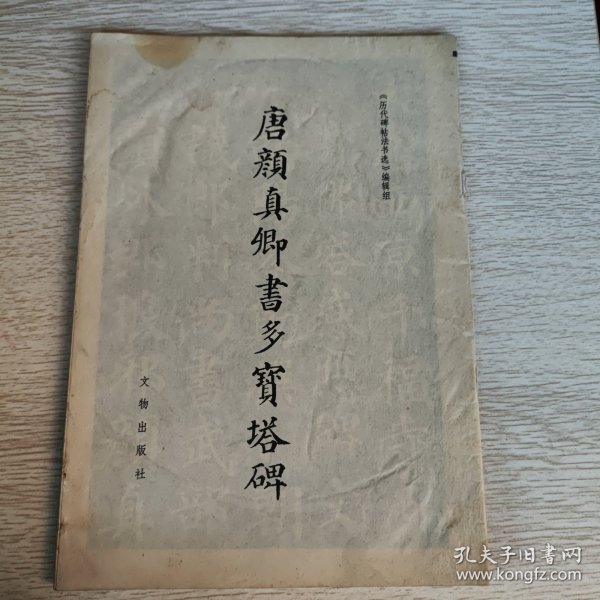 《历代碑帖法书选》编辑组
唐顔真卿書多寳塔碑
文物出版社
孔夫子旧书网
www.kongfz.com